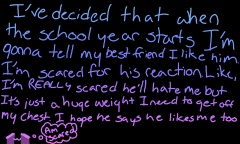 I've decided that when
the school year starts I'm
gonna tell my best friend I like him.
I'm scared for his reaction. Like,
I'm REALLY scared he'll hate me but
It's just a huge weight I need to get off
my chest I hope he says he likes me too
Am scared